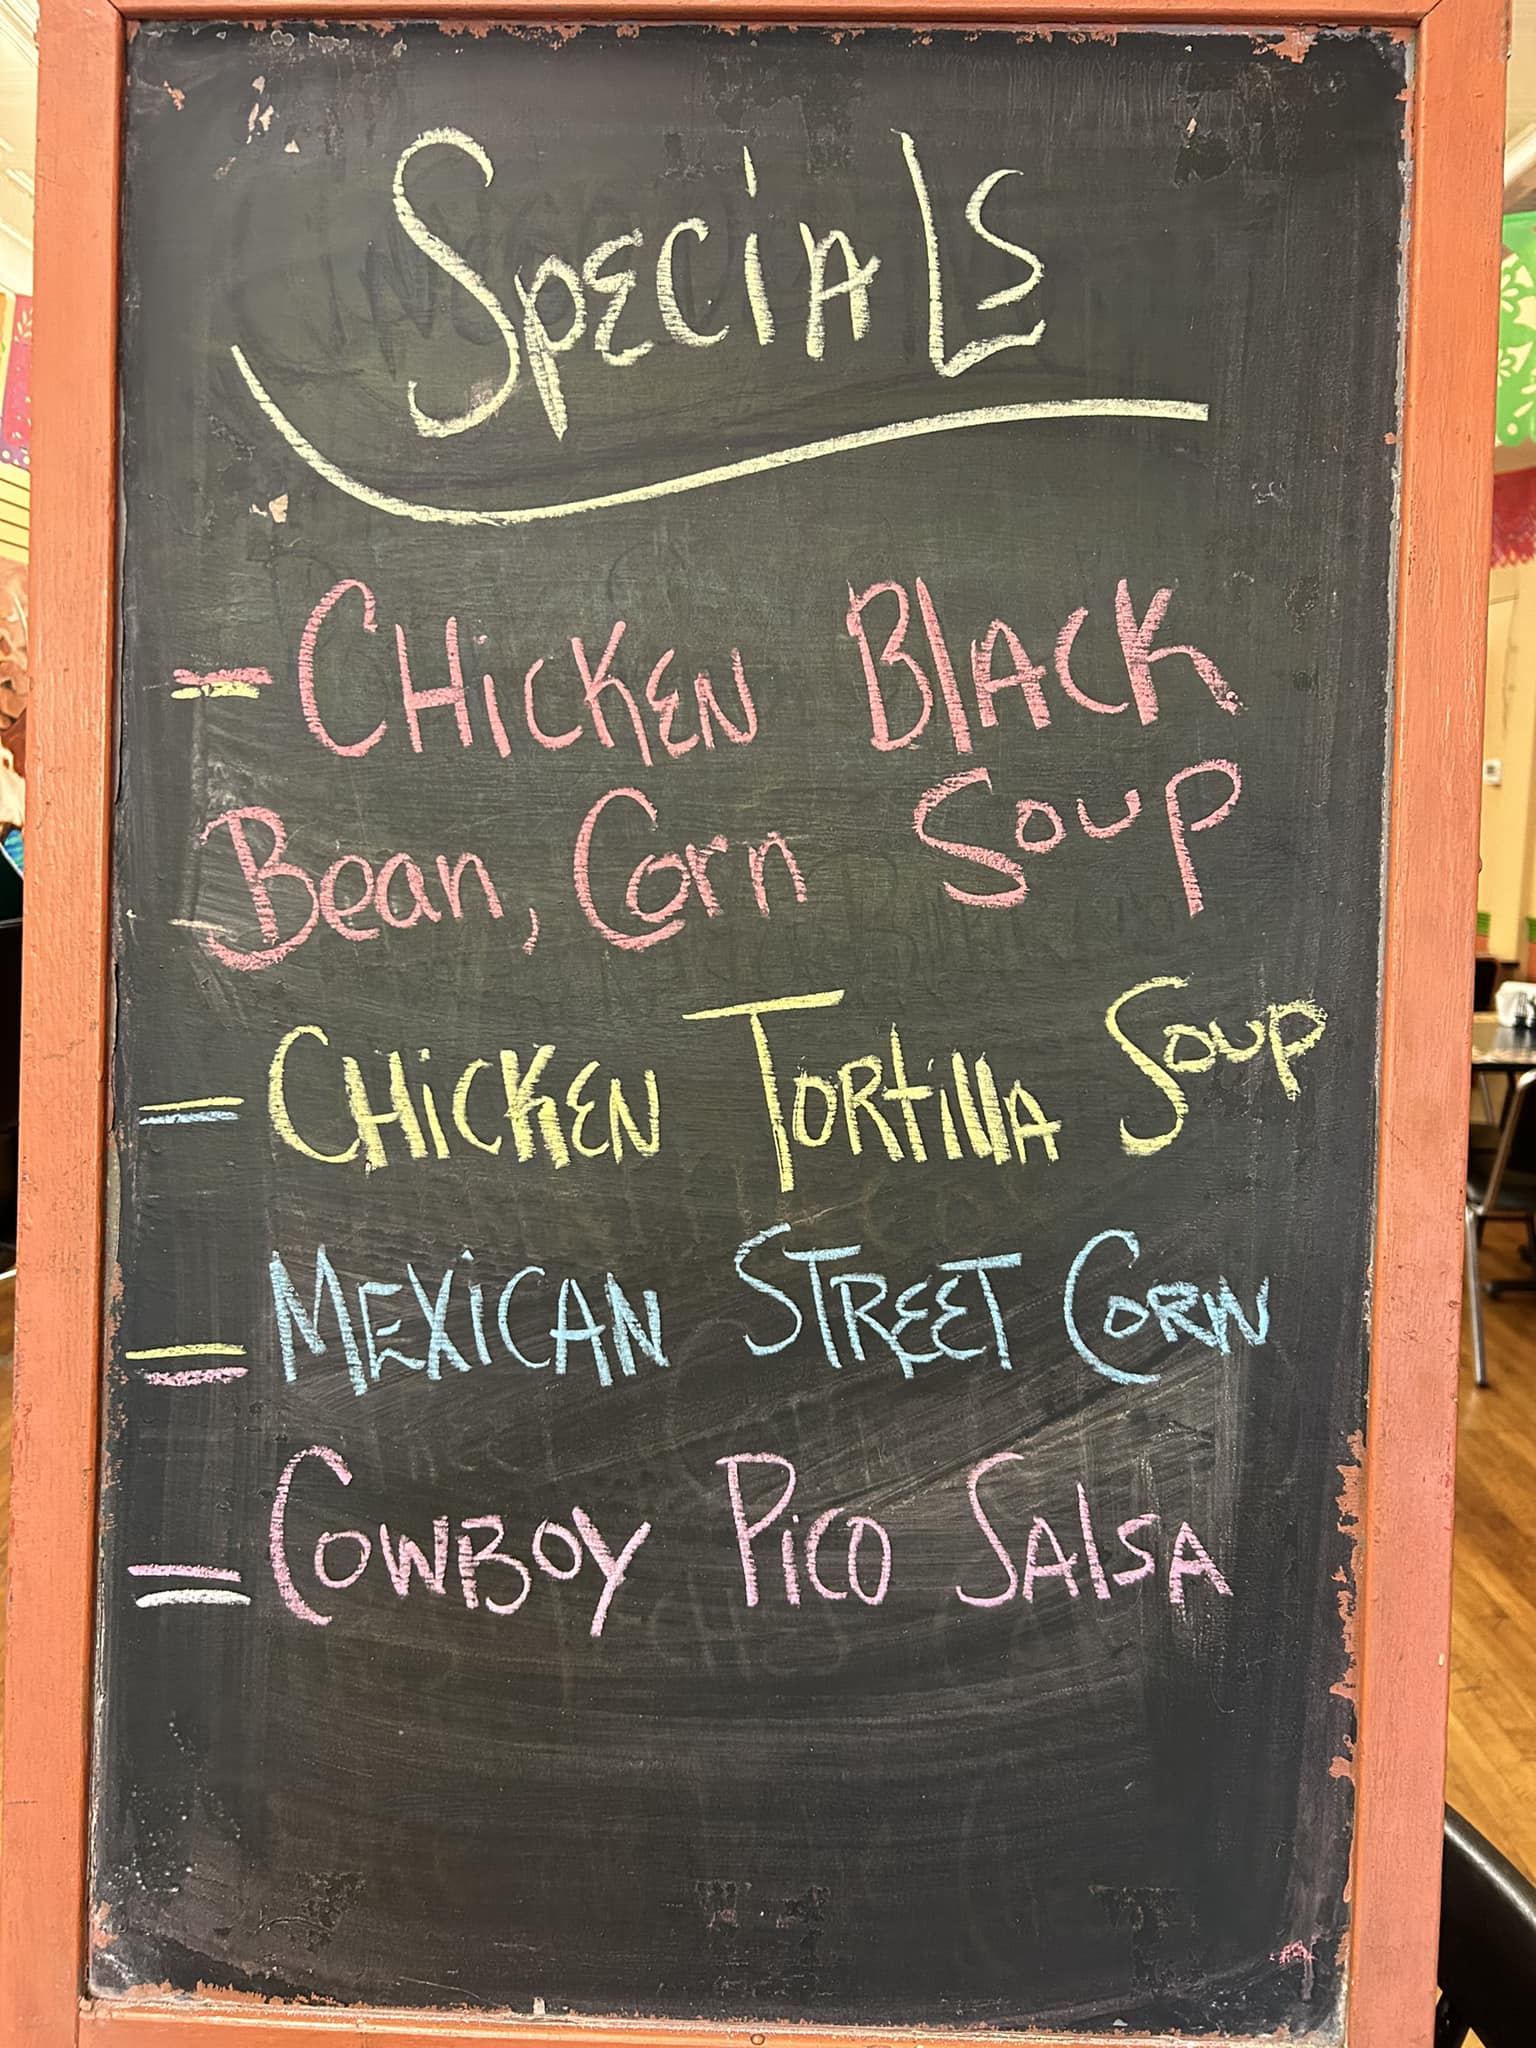 Specials
- Chicken Black
Bean, Corn Soup
- Chicken Tortilla Soup
- Mexican Street Corn
- Cowboy Pico Salsa